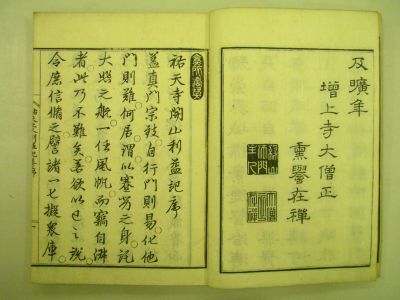 及曠年
增上寺大僧正
熏譽在禪
祐天寺開山利益記序
蓋真門宗致。自行門則易。化他
門則難。何居。謂以劣之身託
大照之船。一任風帆而竊自
者。此乃不難矣。若欲以己之說
令庶信備之。譬諸一七擬衆庫